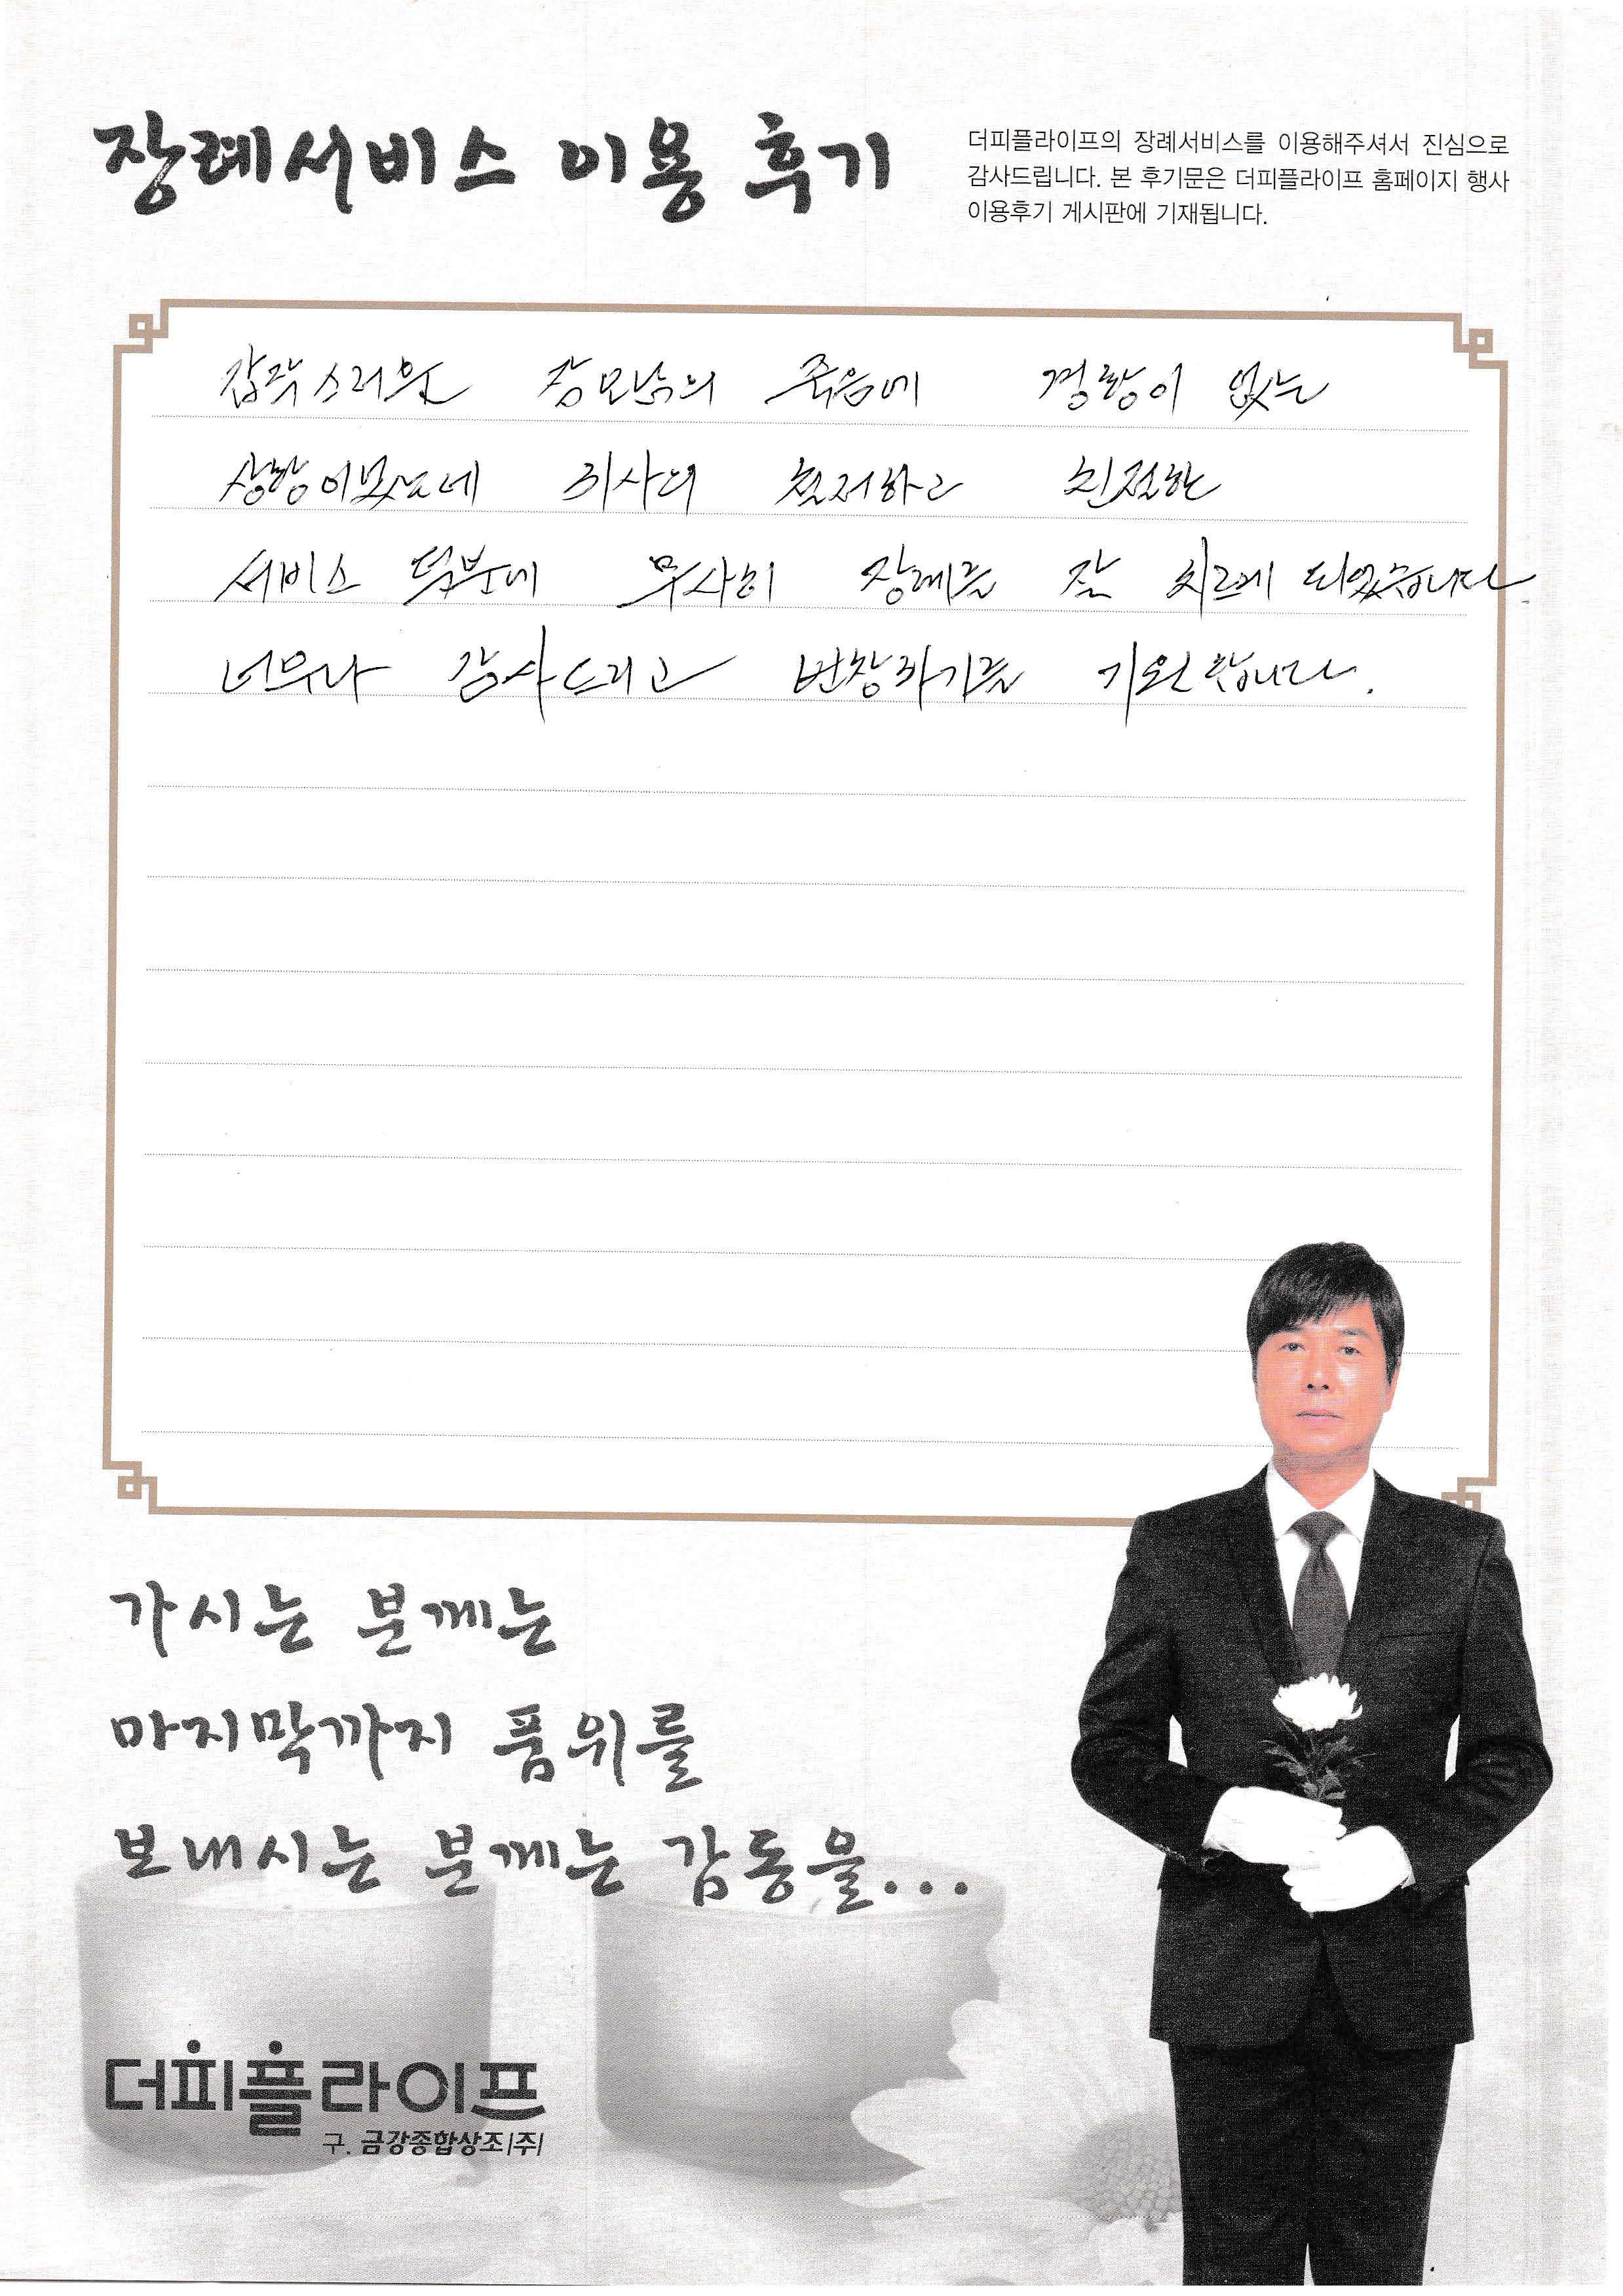 장례서비스 이용 후기
더피플라이프의 장례서비스를 이용해주셔서 진심으로
감사드립니다. 본 후기문은 더피플라이프 홈페이지 행사
이용후기 게시판에 기재됩니다.
갑작스러운 장모님의 죽음에 경황이 없는
상황이였는데 귀사의 철저하고 친절한
서비스 덕분에 무사히 장례를 잘 치르게 되었습니다
너무나 감사드리고 번창하기를 기원합니다.
가시는 분께는
마지막까지 품위를
보내시는 분께는 감동을...
더피플라이프
구. 금강종합상조|주|